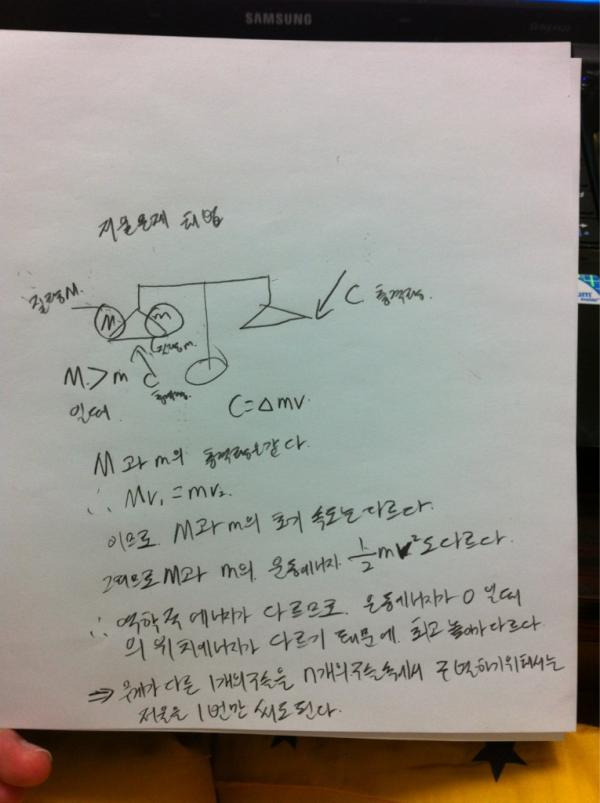 SAMSUNG
저울문제 해법
질량 M.
M
m
질량 m.
C 충격량.
M > m
일때
C
충격량
C = △mv.
M과 m의 충격량은 같다.
∴ Mv₁ = mv₂.
이므로 M과 m의 초기 속도는 다르다.
그러므로 M과 m의 운동에너지 ½mv²도 다르다.
∴ 역학적 에너지가 다르므로. 운동에너지가 0 일때
의 위치에너지가 다르기 때문에. 최고 높이가 다르다
⇒ 무게가 다른 1개의 구슬을 n개의 구슬속에서 구별하기위해서는
저울을 1번만 써도된다.